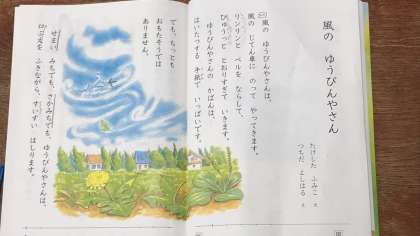 風の ゆうびんやさん
たけした ふみこ 文
つちだ よしはる 絵
風の ゆうびんやさんは、
風の じてん車に のって やってきます。
リンリンと ベルを ならして、
ぴゅうっと とおりすぎて いきます。
ゆうびんやさんの かばんは、
はいたつする 手紙で いっぱいです。
でも、ちっとも
おもたそうでは
ありません。
せまい みちでも、さかみちでも、ゆうびんやさんは、
口ぶえを ふきながら、すいすい はしります。